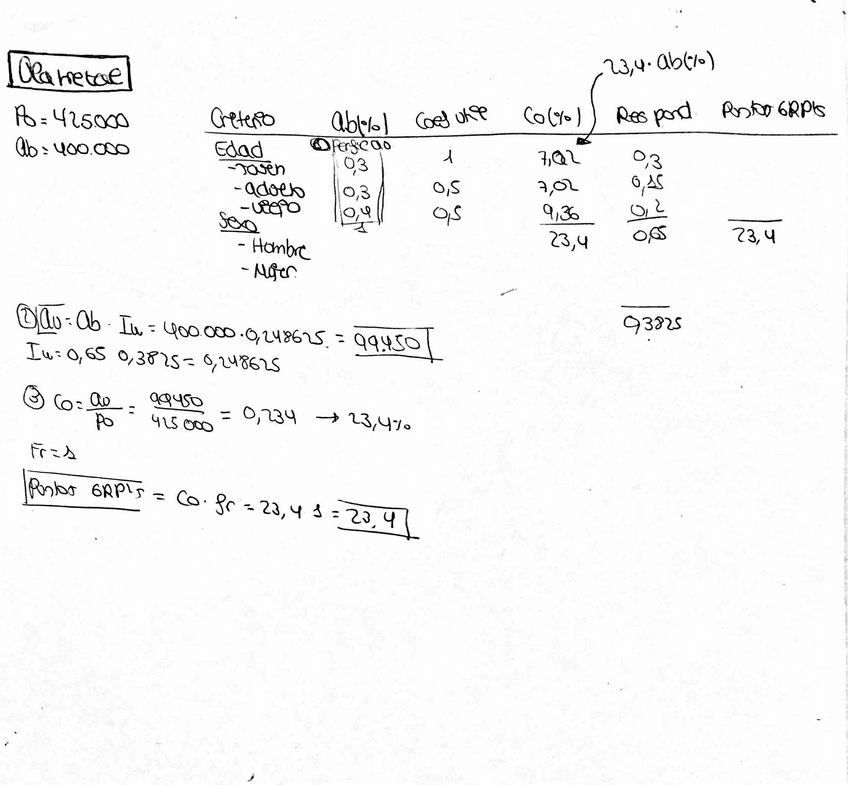 23,4 · ab(%)
Po = 425.000
ab = 400.000
Criterio ab(%) Coef utte Co(%) Res pond Puntos GRPts
Edad ① Perfil ao
- Joven 0,3 1 7,02 0,3
- adulto 0,3 0,5 7,02 0,15
- viejo 0,4 0,5 9,36 0,2
Sexo 1 23,4 0,65 23,4
- Hombre
- Mujer
0,3825
② au = ab · Iu = 400.000 · 0,248625 = 99.450
Iu = 0,65 0,3825 = 0,248625
③ Co = au/Po = 99450/425000 = 0,234 → 23,4%
Fr = 1
Puntos GRPts = Co · fr = 23,4 1 = 23,4